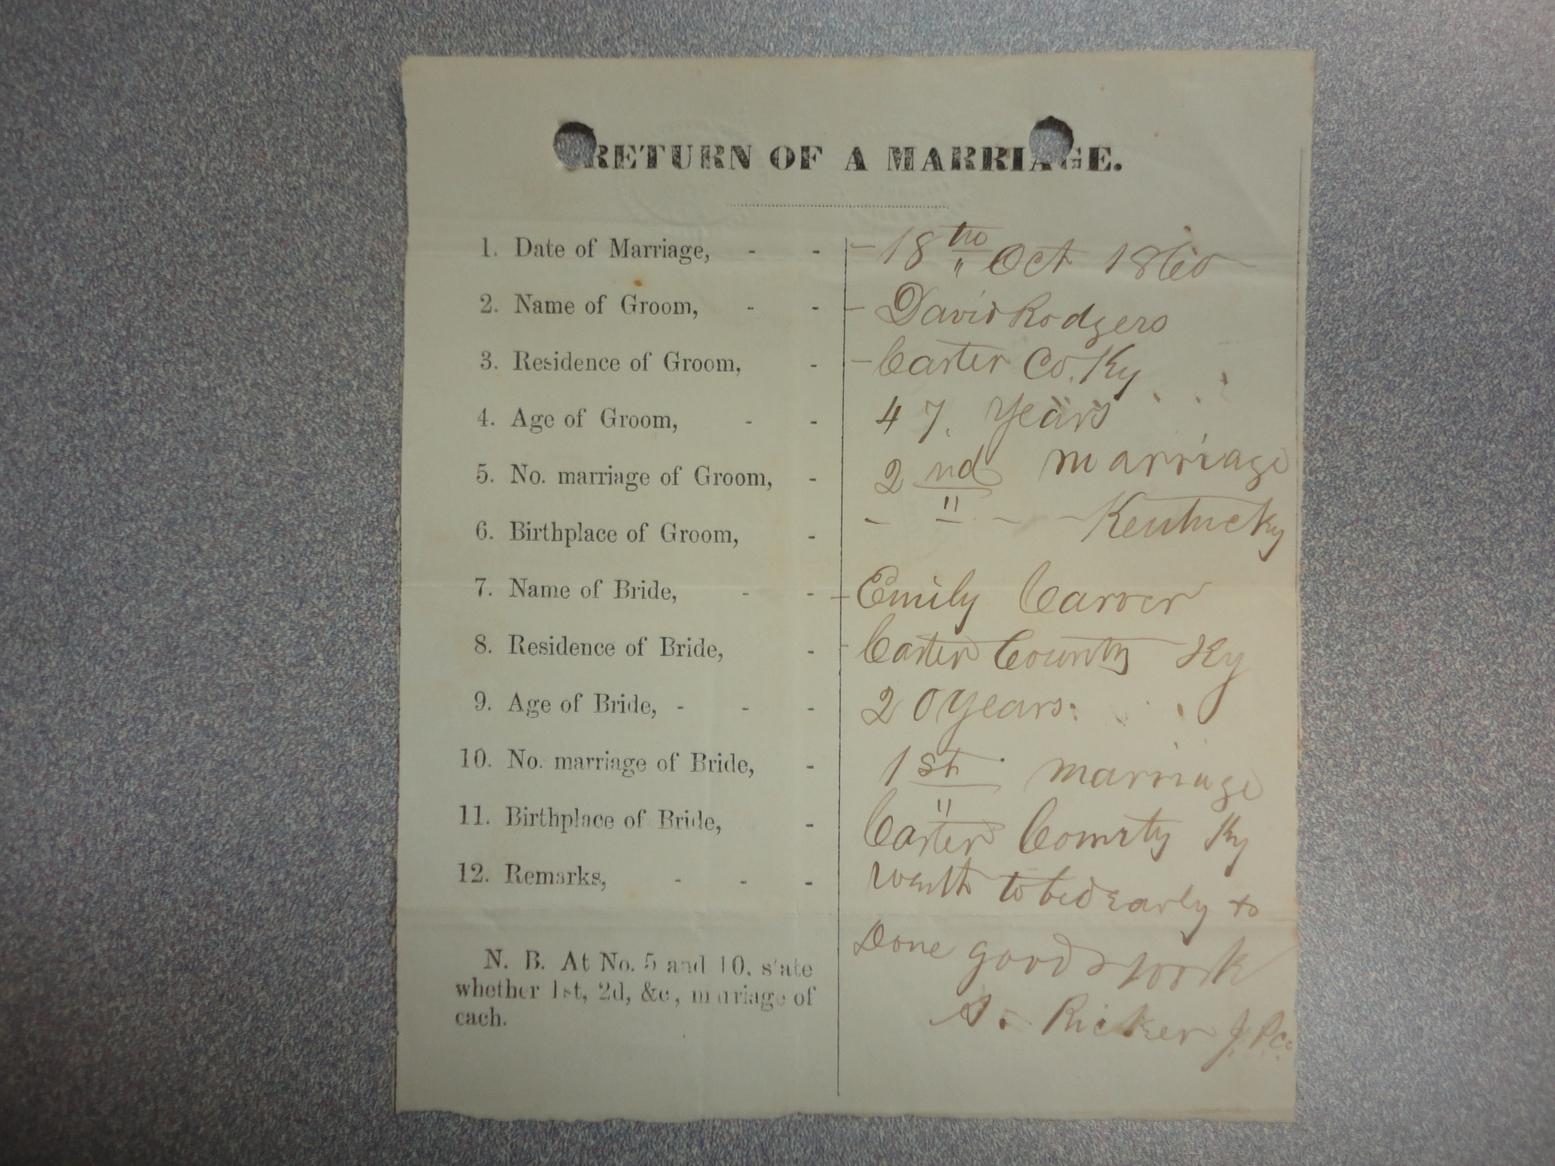 RETURN OF A MARRIAGE.
1. Date of Marriage, - - - 18th Oct 1860
2. Name of Groom, - - - David Rodgers
3. Residence of Groom, - - Carter Co. Ky
4. Age of Groom, - - 47. Years
5. No. marriage of Groom, - 2nd marriage
6. Birthplace of Groom, - - " - - Kentucky
7. Name of Bride, - - - Emily Carver
8. Residence of Bride, - - Carter County Ky
9. Age of Bride, - - - 20 Years.
10. No. marriage of Bride, - 1st marriage
11. Birthplace of Bride, - Carter County Ky
12. Remarks, - - - Wenth to bed early &
Done good work
N. B. At No. 5 and 10, state
whether 1st, 2d, &c, marriage of
each.
Ricker J. P.